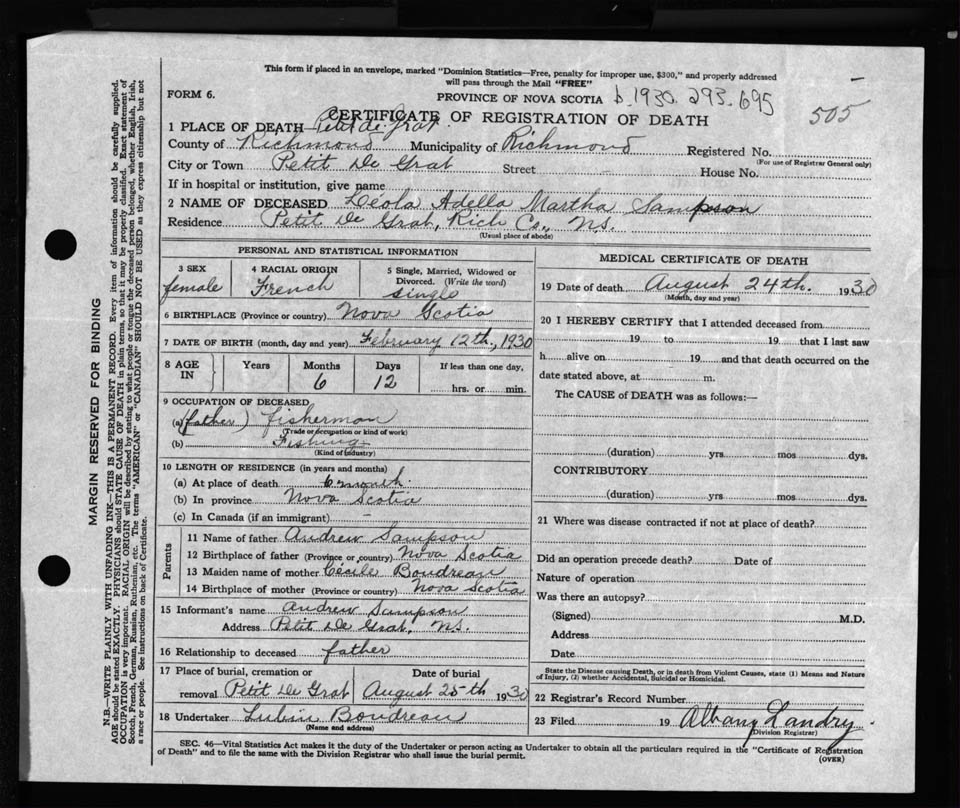 This form if placed in an envelope, marked "Dominion Statistics—Free, penalty for improper use, $300," and properly addressed
will pass through the Mail "FREE"
FORM 6.
PROVINCE OF NOVA SCOTIA b. 1930. 293. 695
505
CERTIFICATE OF REGISTRATION OF DEATH
1 PLACE OF DEATH Petit de Grat.
County of Richmond Municipality of Richmond Registered No.
(For use of Registrar General only)
City or Town Petit De Grat Street House No.
If in hospital or institution, give name
2 NAME OF DECEASED Leola Adella Martha Sampson
Residence Petit De Grat, Rich Co., N.S.
(Usual place of abode)
MARGIN RESERVED FOR BINDING
N.B.—WRITE PLAINLY WITH UNFADING INK—THIS IS A PERMANENT RECORD. Every item of information should be carefully supplied.
AGE should be stated EXACTLY. PHYSICIANS should STATE CAUSE OF DEATH in plain terms, so that it may be properly classified. Exact statement of
OCCUPATION is very important. RACIAL ORIGIN will be described by stating to what people or tongue the deceased person belonged, whether English, Irish,
Scotch, French, German, Russian, Ruthenian, etc. The terms "AMERICAN" or "CANADIAN" SHOULD NOT BE USED as they express citizenship but not
a race or people. See instructions on back of Certificate.
PERSONAL AND STATISTICAL INFORMATION
3 SEX
female
4 RACIAL ORIGIN
French
5 Single, Married, Widowed or
Divorced. (Write the word)
single
6 BIRTHPLACE (Province or country) Nova Scotia
7 DATE OF BIRTH (month, day and year) February 12th, 1930
8 AGE
IN
Years
Months
6
Days
12
If less than one day,
hrs. or min.
9 OCCUPATION OF DECEASED
(a) (father) fisherman
(Trade or occupation or kind of work)
(b) Fishing
(Kind of industry)
10 LENGTH OF RESIDENCE (in years and months)
(a) At place of death 6 month
(b) In province Nova Scotia
(c) In Canada (if an immigrant) -
Parents
11 Name of father Andrew Sampson
12 Birthplace of father (Province or country) Nova Scotia
13 Maiden name of mother Cécile Boudreau
14 Birthplace of mother (Province or country) Nova Scotia
15 Informant's name Andrew Sampson
Address Petit De Grat, N.S.
16 Relationship to deceased father
17 Place of burial, cremation or
removal Petit De Grat
Date of burial
August 25th 1930
18 Undertaker Lubin Boudreau
(Name and address)
MEDICAL CERTIFICATE OF DEATH
19 Date of death August 24th. 1930
(Month, day and year)
20 I HEREBY CERTIFY that I attended deceased from
19 to 19 that I last saw
h alive on 19 and that death occurred on the
date stated above, at m.
The CAUSE of DEATH was as follows:—
(duration) yrs mos dys.
CONTRIBUTORY
(duration) yrs mos dys.
21 Where was disease contracted if not at place of death?
Did an operation precede death? Date of
Nature of operation
Was there an autopsy?
(Signed) M.D.
Address
Date
State the Disease causing Death, or in death from Violent Causes, state (1) Means and Nature
of Injury, (2) whether Accidental, Suicidal or Homicidal.
22 Registrar's Record Number
23 Filed 19 Albany Landry
(Division Registrar)
SEC. 46—Vital Statistics Act makes it the duty of the Undertaker or person acting as Undertaker to obtain all the particulars required in the "Certificate of Registration
of Death" and to file the same with the Division Registrar who shall issue the burial permit.
(OVER)